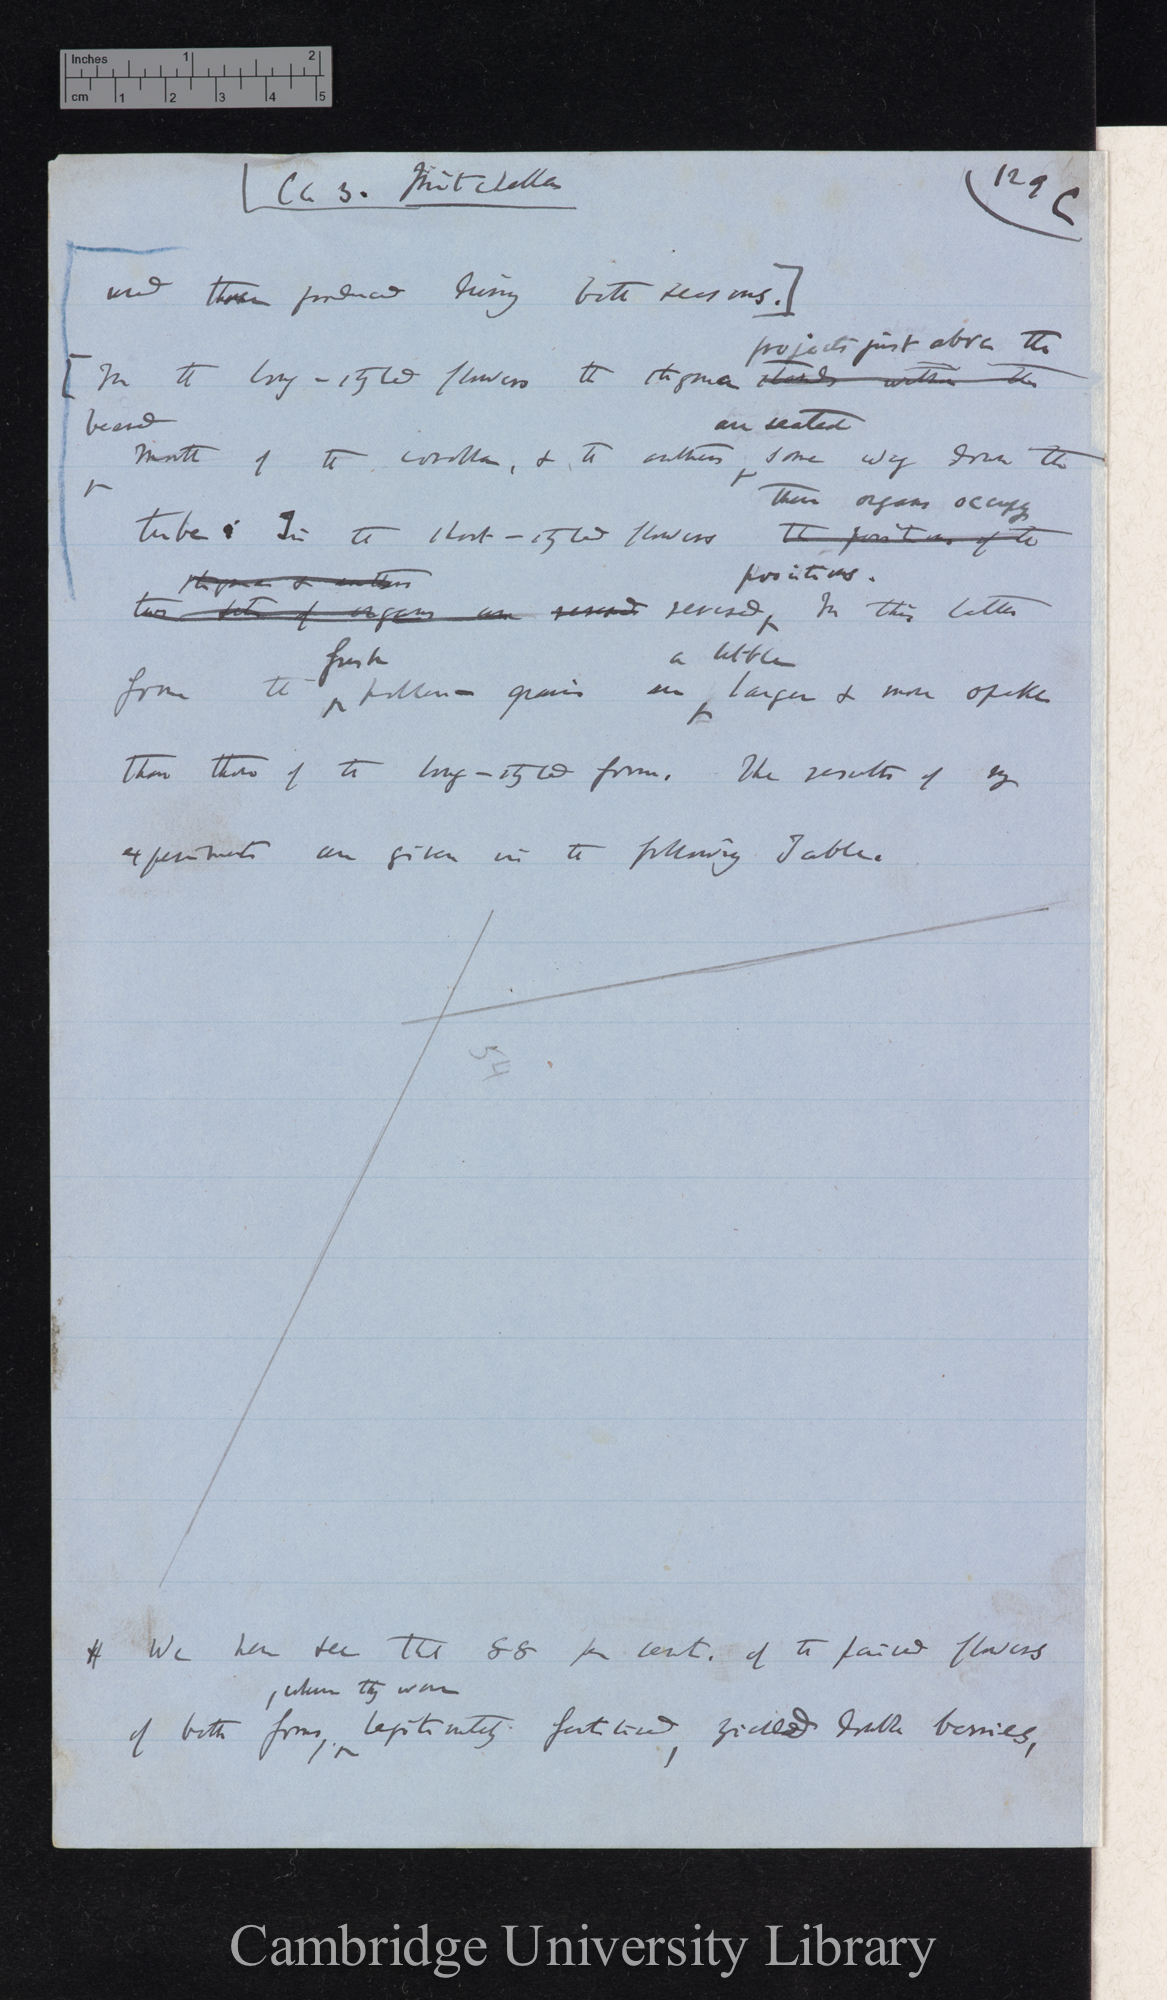 Inches 1 2
cm 1 2 3 4 5
Ch 3. Mitchella
129 C
used them produced during both seasons.]
projects just above the
[In the long-styled flowers the stigma stands within the
beard are seated
mouth of the corolla, & the anthers some way down the
these organs occupy
tube. In the short-styled flowers the positions of the
stigma & anthers positions.
two sets of organs are reversed reversed In this latter
fresh a little
form the pollen-grains are larger & more opake
than those of the long-styled form. The results of my
experiments are given in the following Table.
54
We here see that 88 per cent. of the paired flowers
, when they were
of both forms, legitimately fertilised, yielded double berries,
Cambridge University Library